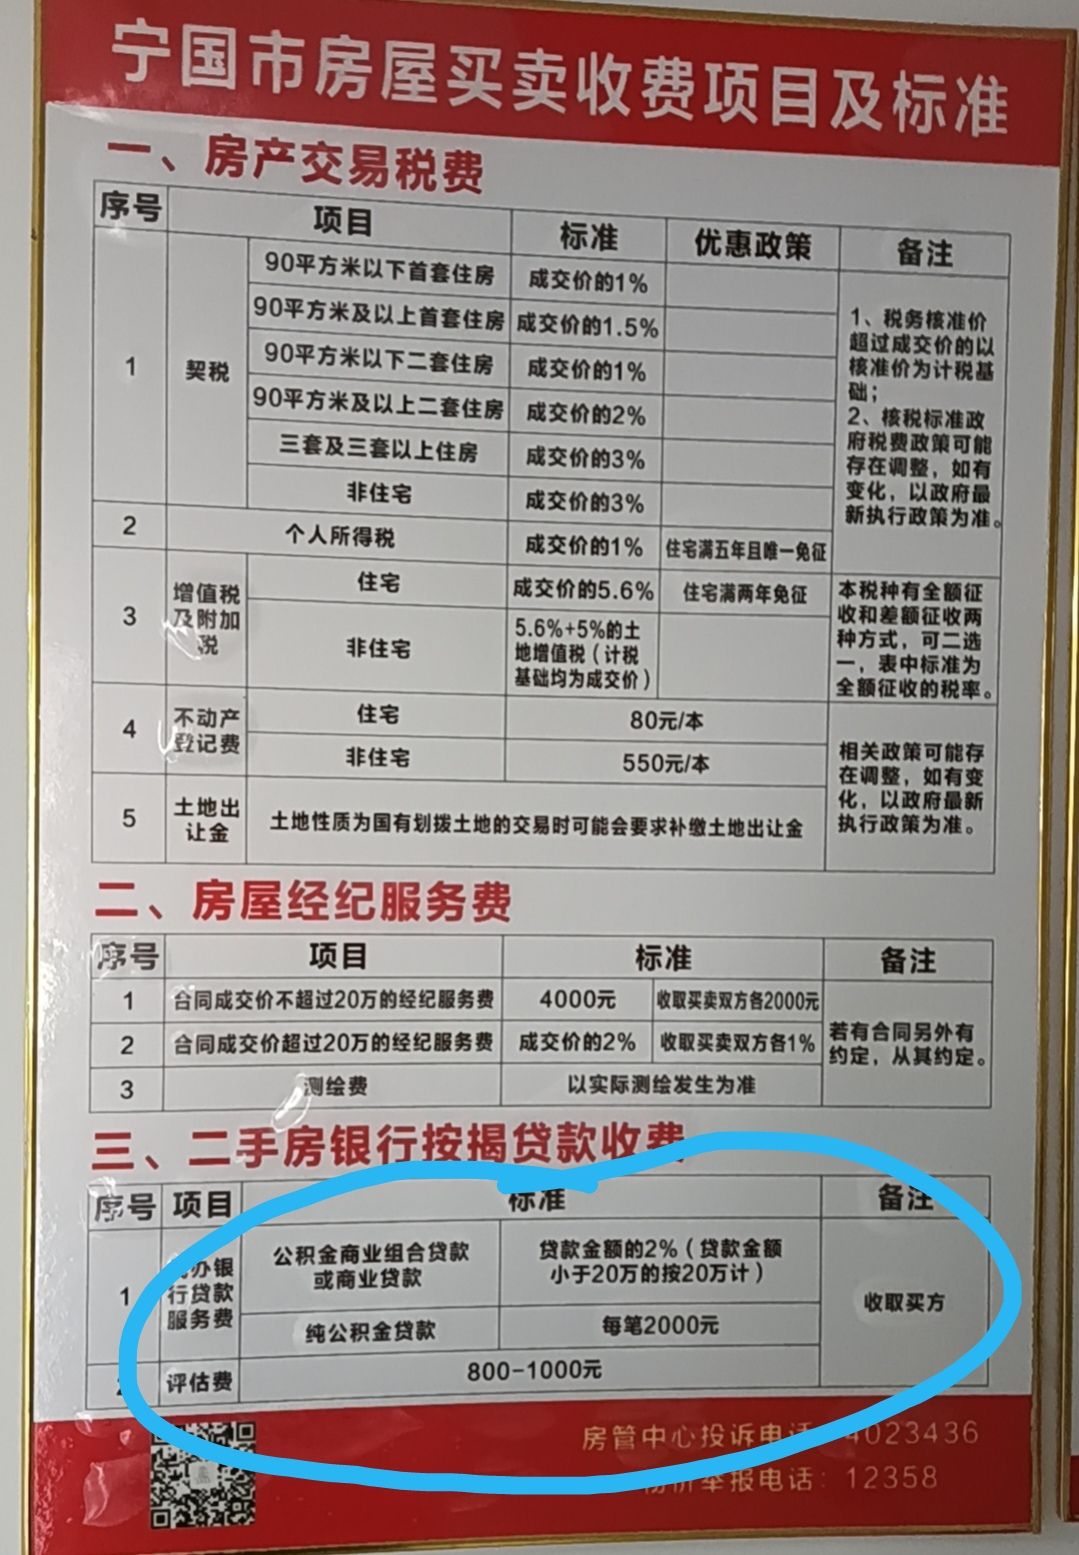 宁国市房屋买卖收费项目及标准
一、房产交易税费
序号 项目 标准 优惠政策 备注
1 契税
90平方米以下首套住房 成交价的1%
90平方米及以上首套住房 成交价的1.5%
90平方米以下二套住房 成交价的1%
90平方米及以上二套住房 成交价的2%
三套及三套以上住房 成交价的3%
非住宅 成交价的3%
1、税务核准价
超过成交价的以
核准价为计税基
础;
2、核税标准政
府税费政策可能
存在调整，如有
变化，以政府最
新执行政策为准。
2 个人所得税 成交价的1% 住宅满五年且唯一免征
3 增值税
及附加
税
住宅 成交价的5.6% 住宅满两年免征
非住宅 5.6%+5%的土
地增值税（计税
基础均为成交价）
本税种有全额征
收和差额征收两
种方式，可二选
一，表中标准为
全额征收的税率。
4 不动产
登记费
住宅 80元/本
非住宅 550元/本
5 土地出
让金
土地性质为国有划拨土地的交易时可能会要求补缴土地出让金
相关政策可能存
在调整，如有变
化，以政府最新
执行政策为准。
二、房屋经纪服务费
序号 项目 标准 备注
1 合同成交价不超过20万的经纪服务费 4000元 收取买卖双方各2000元
2 合同成交价超过20万的经纪服务费 成交价的2% 收取买卖双方各1%
3 测绘费 以实际测绘发生为准
若有合同另外有
约定，从其约定。
三、二手房银行按揭贷款收费
序号 项目 标准 备注
1 办银
行贷款
服务费
公积金商业组合贷款
或商业贷款
贷款金额的2%（贷款金额
小于20万的按20万计）
纯公积金贷款 每笔2000元
收取买方
评估费 800-1000元
房管中心投诉电话 4023436
举报电话：12358